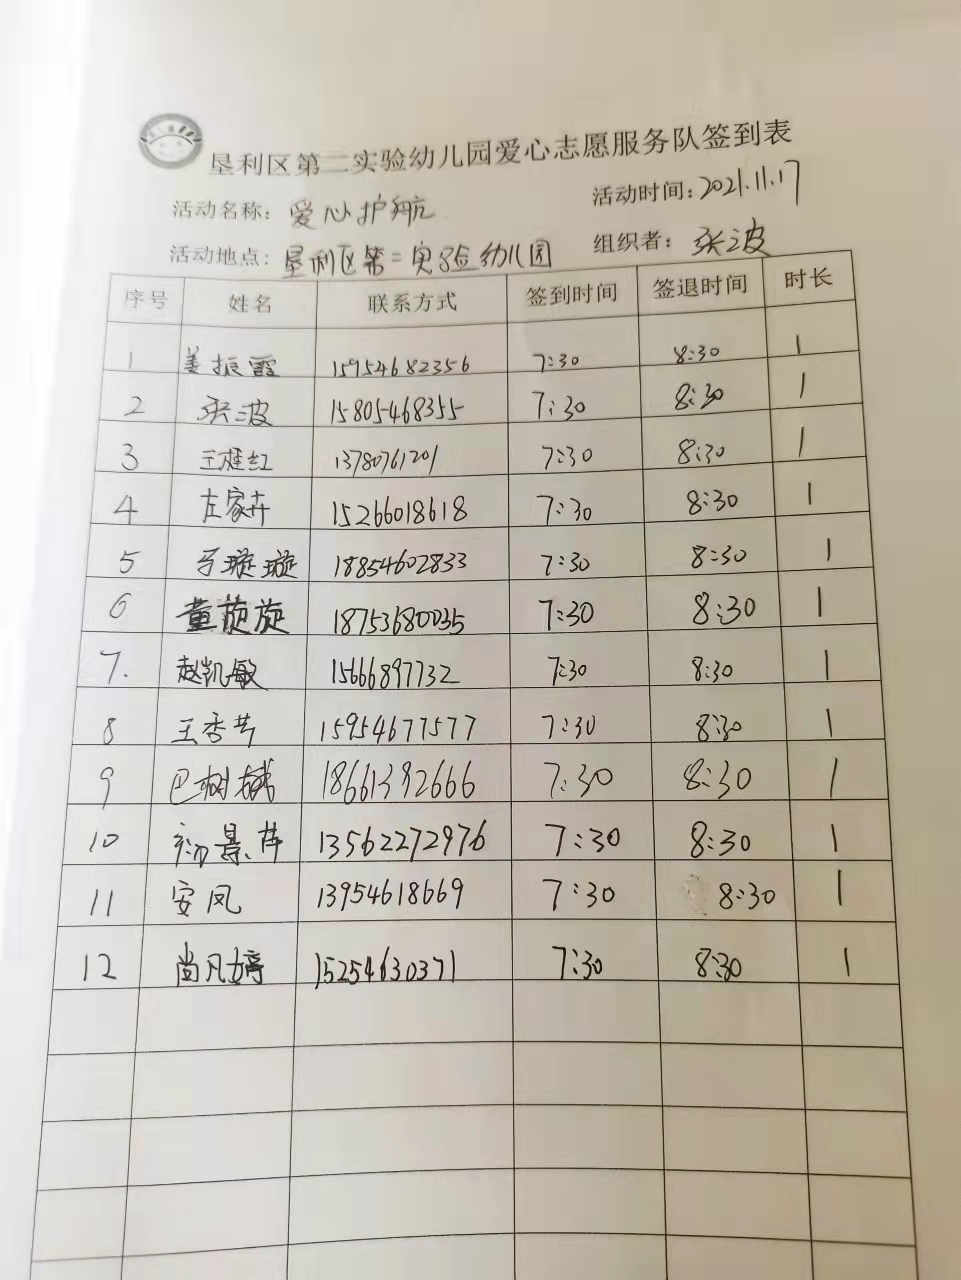 垦利区第二实验幼儿园爱心志愿服务队签到表
活动名称: 爱心护航 活动时间: 2021.11.17
活动地点: 垦利区第二实验幼儿园 组织者: 张波
序号 姓名 联系方式 签到时间 签退时间 时长
1 姜振霞 15954682356 7:30 8:30 1
2 张波 15805468355 7:30 8:30 1
3 王桂红 13780761201 7:30 8:30 1
4 左家卉 15266018618 7:30 8:30 1
5 马璇璇 18854602833 7:30 8:30 1
6 董旋旋 18753680035 7:30 8:30 1
7. 赵凯敏 15666897732 7:30 8:30 1
8 王秀芳 15954677577 7:30 8:30 1
9 巴树 18661392666 7:30 8:30 1
10 初景萍 13562272976 7:30 8:30 1
11 安凤 13954618669 7:30 8:30 1
12 尚凡婷 15254630371 7:30 8:30 1